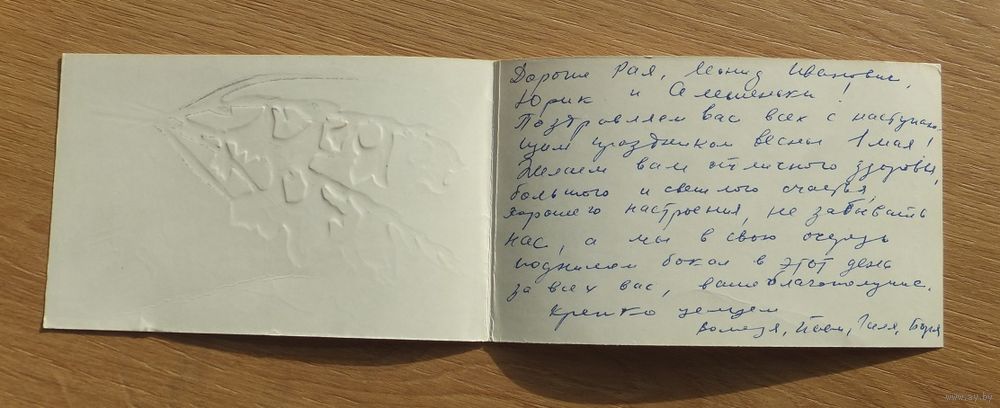 Дорогие Рая, Леонид Иванович,
Юрик и
Поздравляем вас всех с наступаю-
щим праздником весны 1 мая!
Желаем вам отличного здоровья,
большого и светлого счастья,
хорошего настроения, не забывать
нас, а мы в свою очередь
поднимем бокал в этот день
за всех вас, ваше благополучие.
Крепко целуем
Галя, Боря
www.ay.by